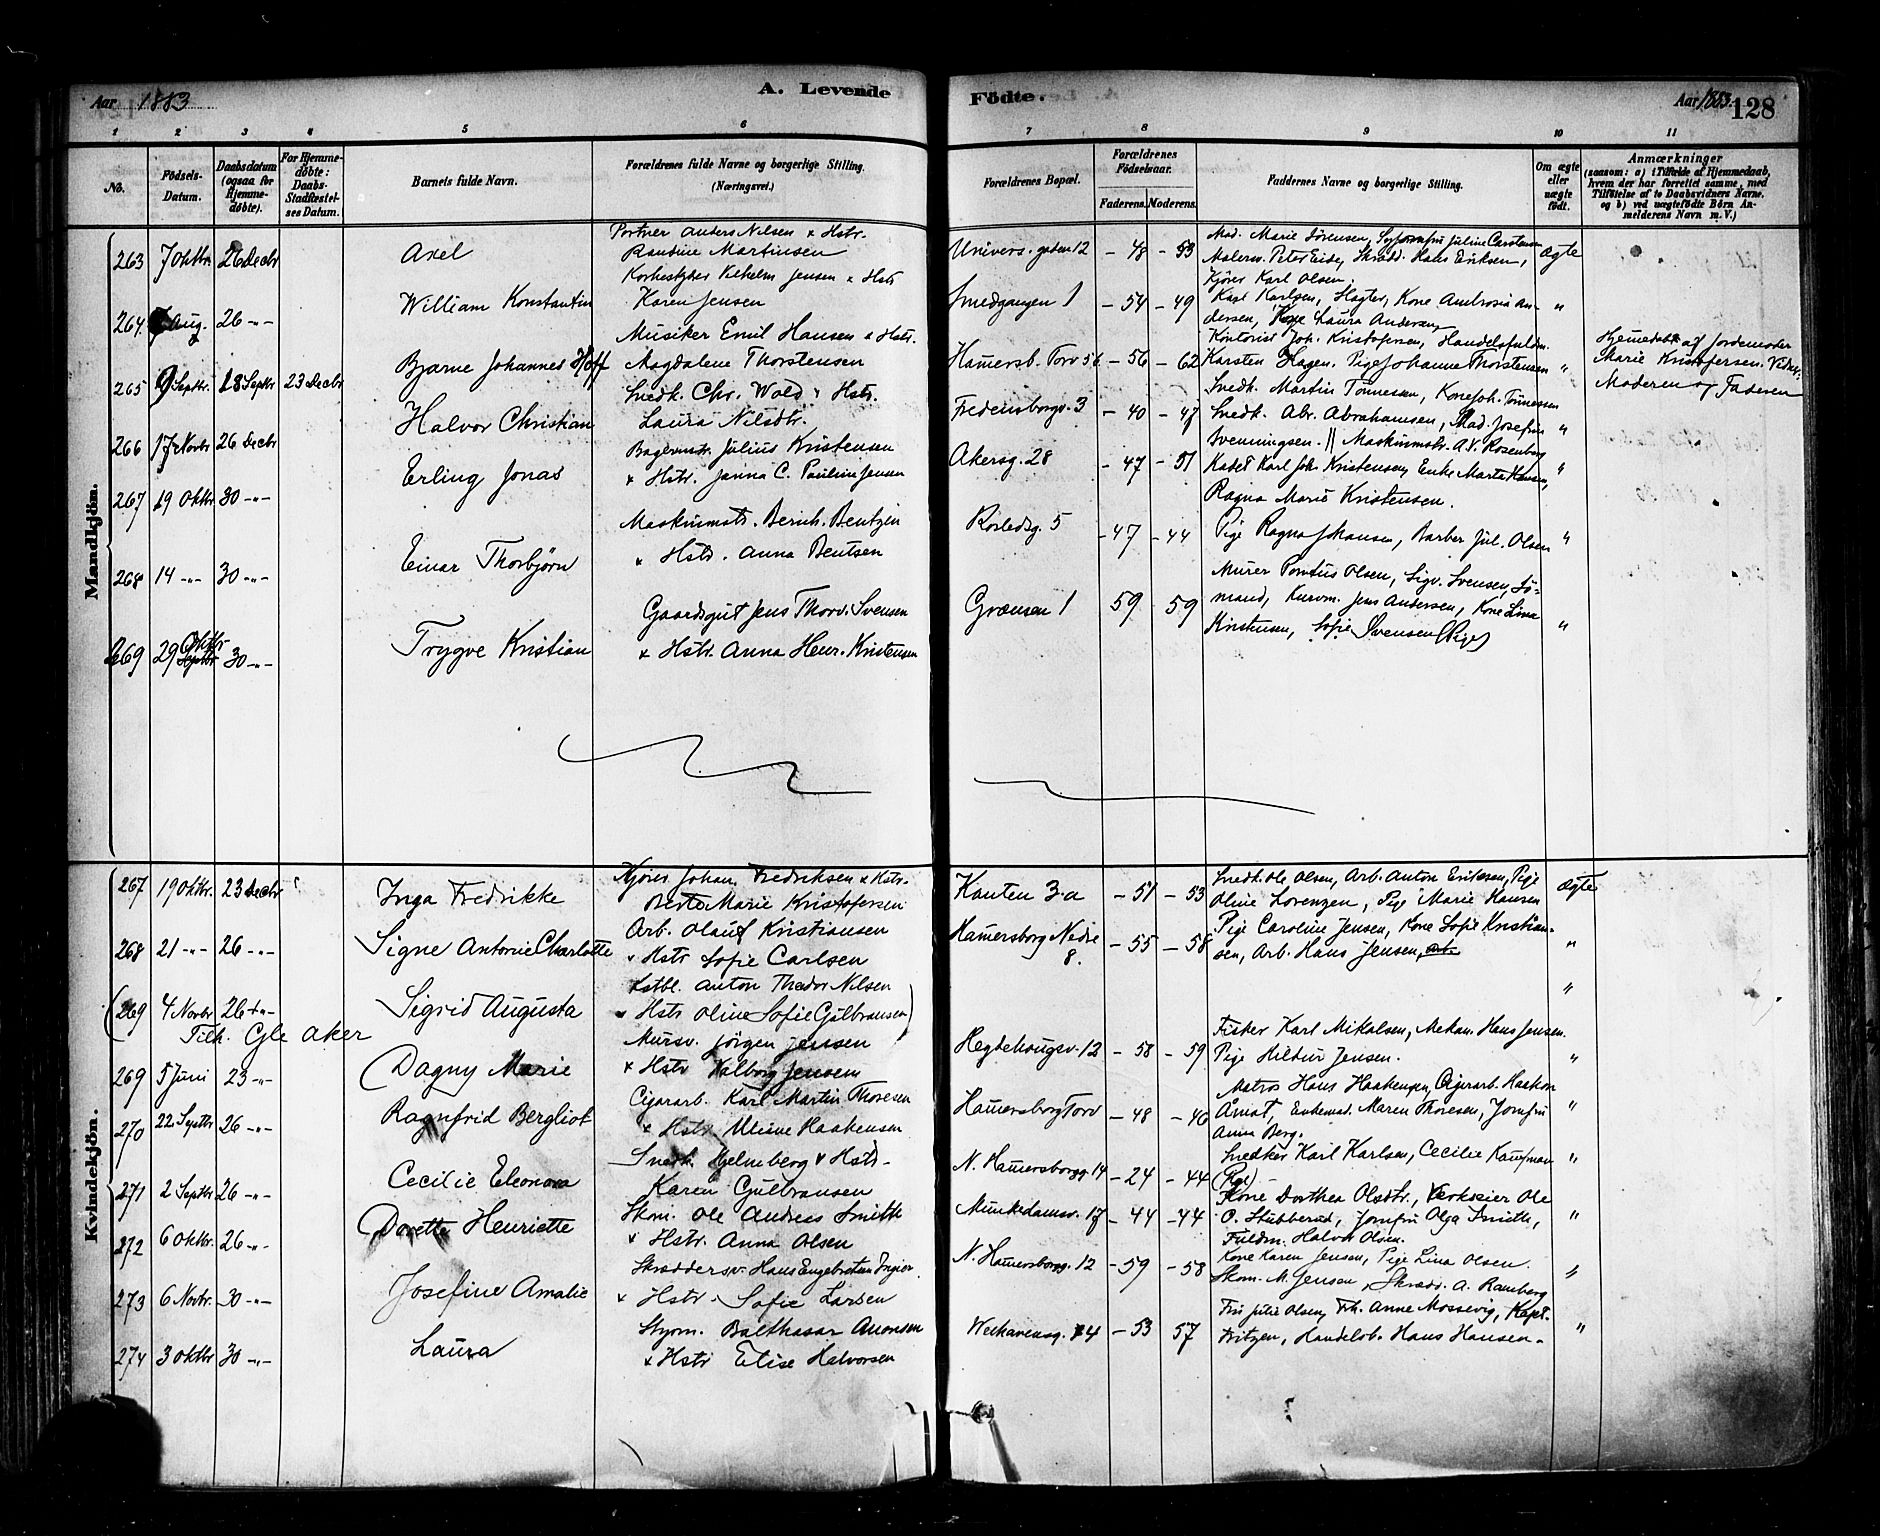 Aar 1883
A. Levende
Födte.
Aar 1883.
128
1 2 3 4 5 6 7 8 9 10 11
No.
Födsels-Datum.
Daabsdatum (ogsaa for Hjemme-döbte).
For Hjemme-döbte: Daabs-Stadfæstel-ses Datum.
Barnets fulde Navn.
Forældrenes fulde Navne og borgerlige Stilling. (Næringsvei.)
Forældrenes Bopæl.
Forældrenes Födselsaar.
Faderens. Moderens.
Faddernes Navne og borgerlige Stilling.
Om ægte eller uægte födt.
Anmærkninger
(saasom: a) i Tilfælde af Hjemmedaab, hvem der har forrettet samme, med Tilföielse af to Daabsvidners Navne, og b) ved uægtefödte Börn An-melderens Navn m. V.)
Mandkjön.
263 7 Oktbr. 26 Decbr Axel
Portner Anders Nilsen & Hstr.
Randine Martinsen
Univers. gaden 12 - 48 - 53
Mad. Marie Sørensen, Syjomfru Juline Carstensen
Malerm. Peter Eide, Skrædd. Hans Eriksen,
Kjører Karl Olsen.
Ægte
264 7 Aug. 26 -"- William Konstantin
Korkestykker Vilhelm Jensen & Hstr
Karen Jensen
Smedgangen 1 - 54 - 49
Karl Karlsen, Slagter, Kone Ambrosia An-
dersen, Kone Laura Andersen
"
265 9 Septbr. 18 Septbr 23 Decbr Bjarne Johannes Hoff
Musiker Emil Hansen & Hstr.
Magdalene Thorstensen
Hamersb. Torv 56 - 56 - 62
Kontorist Joh. Kristofersen, Handelsfuldm.
Karsten Hagen, Pige Johanne Thorstensen
"
Hjemedøbt af Jordemoder
Marie Kristofersen. Vidner:
Moderen og Faderen
266 17 Novbr 26 Decbr Halvor Christian
Snedk. Chr. Wold & Hstr.
Laura Nilsdtr.
Fredensborgv. 3 - 40 - 47
Snedk. Martin Tønnesen, Kone Joh. Tønnesen
Snedk. Abr. Abrahamsen, Mad. Josefine
Svenningsen. || Maskinmstr. A.V. Rosenberg
"
267 19 Oktbr 30 -"- Erling Jonas
Bagermstr. Julius Kristensen
& Hstr. Janna C. Pauline Jensen
Akersg. 28 - 47 - 51
Kadet Karl Joh. Kristensen, Enke Marta Hansen,
Ragna Marie Kristensen.
"
268 14 -"- 30 -"- Einar Thorbjørn
Maskinmstr. Bernh. Bentzen
& Hstr. Anna Bentsen
Rosledsg. 5 - 47 - 44
Pige Ragna Johansen, Barber Jul. Olsen
"
269 29 Oktbr Septbr 30 -"- Trygve Kristian
Gaardsgut Jens Thorv. Svensen
& Hstr. Anna Henr. Kristensen
Grænsen 1 59 - 59
Murer Pontus Olsen, Sigv. Svensen, Sø-
mand, Kurvm. Jens Andersen, Kone Lina
Kristensen, Sofie Svensen (Pige)
"
Kvindekjön.
267 19 Oktbr. 23 Decbr Inga Fredrikke
Kjører Johan Fredriksen & Hstr.
Berte Marie Kristofersen
Kanten 3 a - 51 - 53
Snedk. Ole Olsen, Arb. Anton Eriksen, Pige
Oline Lorenzen, Pige Marie Hansen
Ægte
268 21 -"- 26 -"- Signe Antonie Charlotte
Arb. Olauf Kristiansen
& Hstr Sofie Carlsen
Hamersborg Nedre 8. - 55 - 58
Pige Caroline Jensen, Kone Sofie Kristian-
sen, Arb. Hans Jensen, Arb.
"
(269 4 Novbr 26 -"- Sigrid Augusta
Lstbl. Anton Theodor Nilsen
& Hstr Oline Sofie Gulbransen)
Tilh. Gle Aker
"
269 5 Juni 23 -"- Dagny Marie
Mursv. Jørgen Jensen
& Hstr Valborg Jensen
Hegdehougsv. 12 - 58 - 59
Fisker Karl Mikalsen, Mekan. Hans Jensen.
Pige Hildur Jensen.
"
270 22 Septbr 26 -"- Ragnfrid Bergliot
Cigararb. Karl Martin Thoresen
& Hstr Mline Haakensen
Hamersborg Torv - 48 - 46
Matros Hans Haakensen, Cigararb. Haakon
Åmot, Enkemad. Maren Thoresen, Jomfru
Anna Berg.
"
271 2 Septbr 26 -"- Cecilie Eleonora
Snedk. Hjelmberg & Hstr.
Karen Gulbransen
N. Hamersborgg. 14 - 24 - 44
Snedker Karl Karlsen, Cecilie Kaufman
(Pige) -
"
272 6 Oktbr. 26 -"- Dorette Henriette
Skom. Ole Andreas Smith
& Hstr. Anna Olsen
Munkedamsv. 17 - 44 - 44
Kone Dorthea Olsdtr., Verkseier Ole
O. Stubberud, Jomfru Olga Smith,
Fuldm. Halvor Olsen.
"
273 6 Novbr. 30 -"- Josefine Amalie
Skræddersv. Hans Engebretsen Ingier
& Hstr. Sofie Larsen
N. Hamersborgg. 12 - 59 - 58
Kone Karen Jensen, Pige Lina Olsen.
Skom. M. Jensen, Skrædd. A. Ramberg
"
274 3 Oktbr 30 -"- Laura
Styrm. Balthasar Amonsen
& Hstr Elise Halvorsen
Welhavensg. 4 - 53 57
Fru Julie Olsen, Frk. Anne Mossevig, Kapt.
Fritzen, Handelsb. Hans Hansen.
"